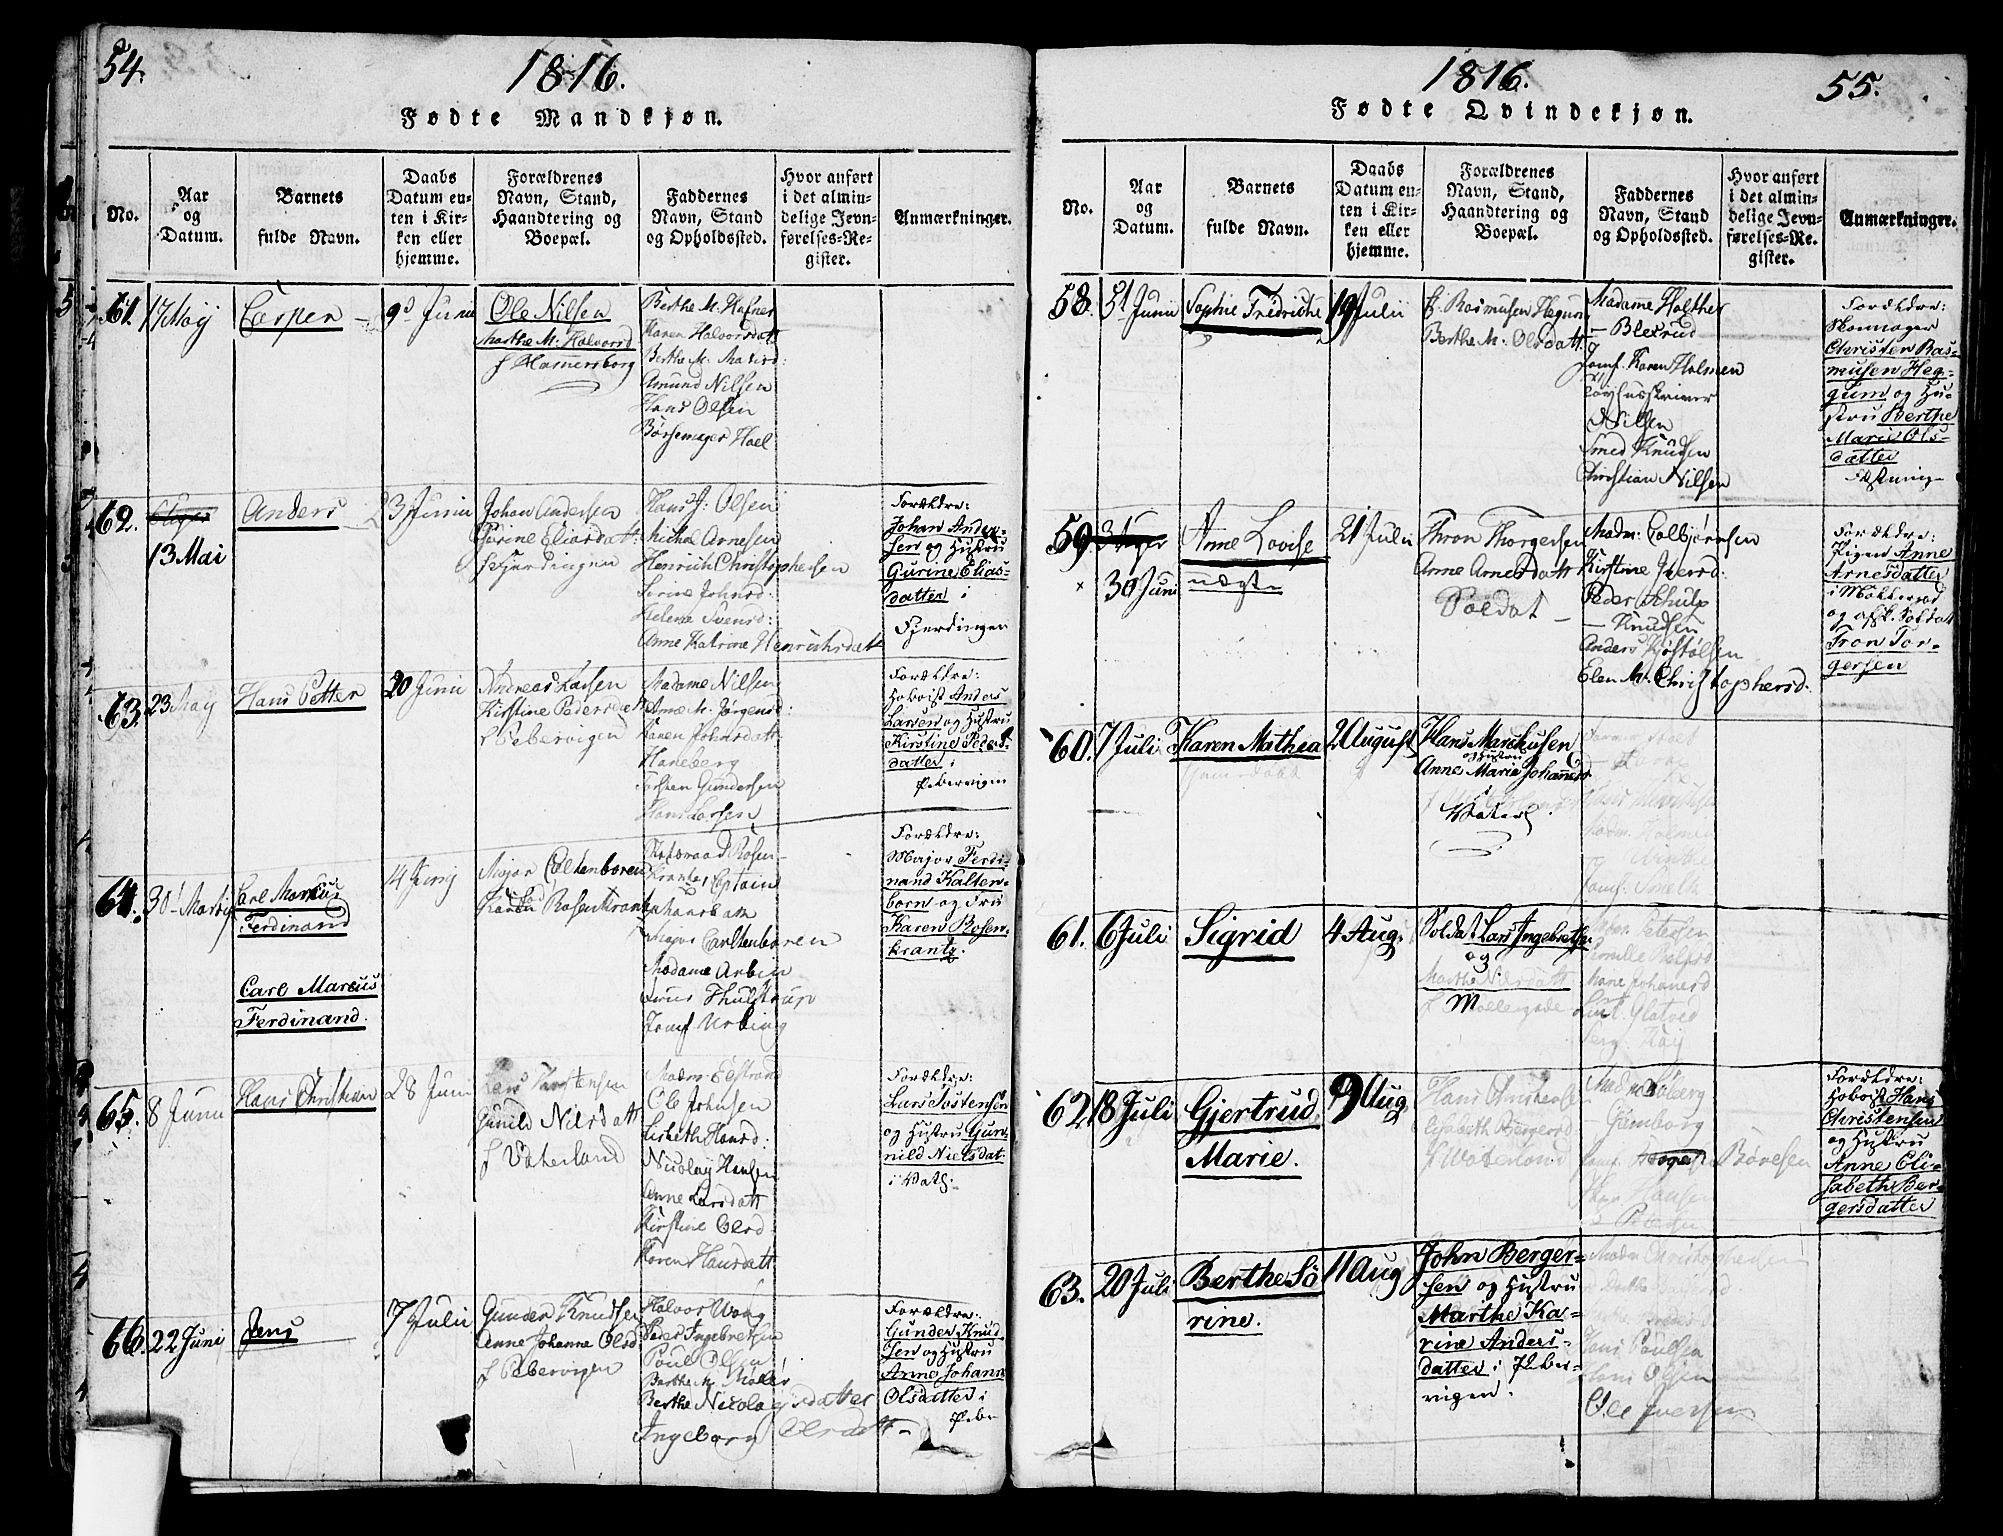 54.
1816.
Fødte Mandkjøn.
No.
Aar
og
Datum.
Barnets
fulde Navn.
Daabs
Datum en-
ten i Kir-
ken eller
hjemme.
Forældrenes
Navn, Stand,
Haandtering og
Boepæl.
Faddernes
Navn, Stand
og Opholdssted.
Hvor anført
i det almin-
delige Jevn-
førelses-Re-
gister.
Anmærkninger.
61.
17 May
Casper
9d Junii
Ole Nilsen
Marthe M: Halvorsd
f Hamersborg
Berthe M. Hafner
Karen Halvorsdatt
Berthe M. Madsd:
Amund Nilsen
Hans Olsen
Børsemager Hoel
62.
13 Mai
Anders
23 Junii
Johan Andersen
Gurine Eliasdatt:
f Fjerdingen
Hans J: Olsen
Michel Arnesen
Henrich Christophersen
Sirine Johnsd:
Helene Svensd:
Anne Katrine Henrichsdatt
Forældre:
Johan Ander-
sen og Hustru
Gurine Elias-
datter i
Fjerdingen
63.
23 May
Hans Petter
20 Junii
Andreas Larsen
Kirstine Pedersdatt
f Pebervigen
Madame Nilsen
Anne M. Jørgensd:
Karen Johnsdatt
Haneberg
Torsten Gundersen
Hans Larsen
Forældre:
Hoboist Anders
Larsen og Hustru
Kirstine Peders-
datter i
Pebervigen
64.
30 Marty
Carl Marcus
Ferdinand
Carl Marcus
Ferdinand.
14 Junij
Major Caltenboren
Karen Rosenkrantz
Etatsraad Rosen-
krantz, Captain
Major Carltenboren
Madame Arbin
Frue Thulstrup
Jomf Urbing
Forældre:
Major Ferdi-
nand Kalten-
born og Fru
Karen Rosen-
krantz.
65.
8 Junii
Hans Christian
28 Junii
Lars Torstensen
Gunild Nilsdatt
f Vaterland
Madm: Eestrand
Ole Johnsen
Lisbeth Hansd:
Nicolay Hansen
Anne Larsdatt
Kirstine Olsd:
Karen Hansdatt
Forældre:
Lars Tostensen
og Hustru Gun-
nild Nielsdat.
i Vatl.
66.
22 Juni
Jens
7 Julii
Gunder Knudsen
Anne Johanne Olsd
f Pebervigen
Halvor Wang
Peder Ingebretsen
Poul Olsen
Berthe M. Møller
Berthe Nicolaysdatter
Ingeborg Olsdatt
Forældre:
Gunder Knud-
sen og Hustru
Anne Johanne
Olsdatter i
Pebe
1816.
55.
Fødte Qvindekjøn.
No.
Aar
og
Datum.
Barnets
fulde Navn.
Daabs
Datum en-
ten i Kir-
ken eller
hjemme.
Forældrenes
Navn, Stand,
Haandtering og
Boepæl.
Faddernes
Navn, Stand
og Opholdssted.
Hvor anført
i det almin-
delige Jevn-
førelses-Re-
gister.
Anmærkninger.
58.
Junii
Sophie Fredriche
19 Julii
Rasmusen Hegum
Berthe M: Olsdatt
Madame Holther
– Blexrud
Jomf. Karen Holmen
Nilsen
Smed Knudsen
Christian Nilsen
Forældre:
Skomager
Christen Ras-
musen Heg-
gum og Hu-
stru Berthe
Marie Ols-
datter
Fæstning
59
30 Juni
Anne Lovise
uægte
21 Julii
Thron Thorgersen
Anne Arnesdatt
Soldat –
Madm: Colbjørnsen
Kirstine Iversd:
Peder Schulp
– Knudsen
Anders Kostølsen
Elen M: Christophersd.
Forældre:
Pigen Anne
Arnesdatter
i Møllergad
og afsk. Soldat
Tron Tor-
gersen
60.
7 Juli
Karen Mathea
2 August
Hans Marchusen
og Hustru
Anne Marie Johannesd
i Vaterl.
61.
6 Juli
Sigrid
4 Aug.
Soldat Lars Ingebretsen
og
Marthe Nilsdatt
f Møllergade
Petersen
Lint. Glatved
Serg. Kay
62
18 Juli
Gjertrud
Marie.
9 Aug
Hans Christensen
Elisabeth Bergersd
f Waterland
Madm Moberg
– Gamborg
Bøvesen
Haasen
Forældre:
Hoboist Hans
Christensen
og Hustru
Anne Eli-
sabeth Ber-
gersdatter
63.
20 Juli
Berthe Sø-
rine.
11 Aug
John Berger-
sen og Hustru
Marthe Ka-
rine Anders-
datter i Peber-
vigen.
Madm Christophersen
Hans Paulsen
Hans Olsen
Ole Iversen